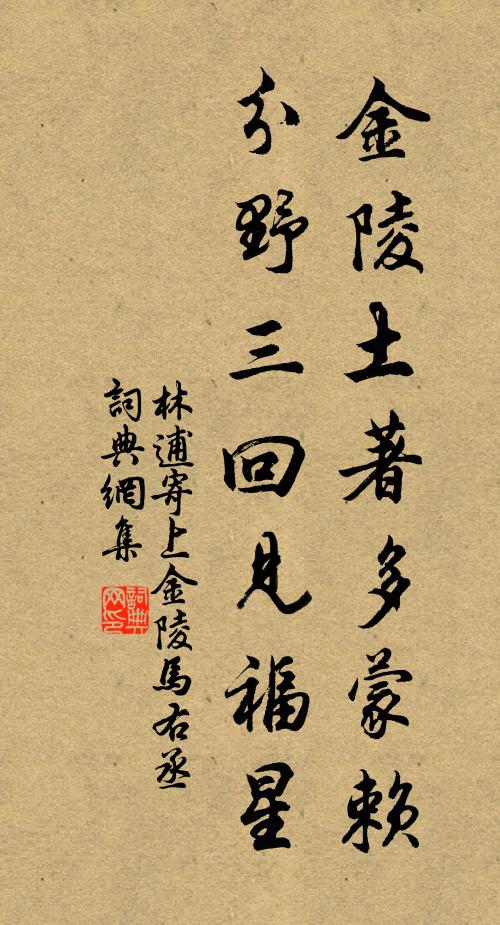 金陵土著多蒙賴
分野三回見福星
林逋寄上金陵馬右丞
詞典網集
詞典
网印